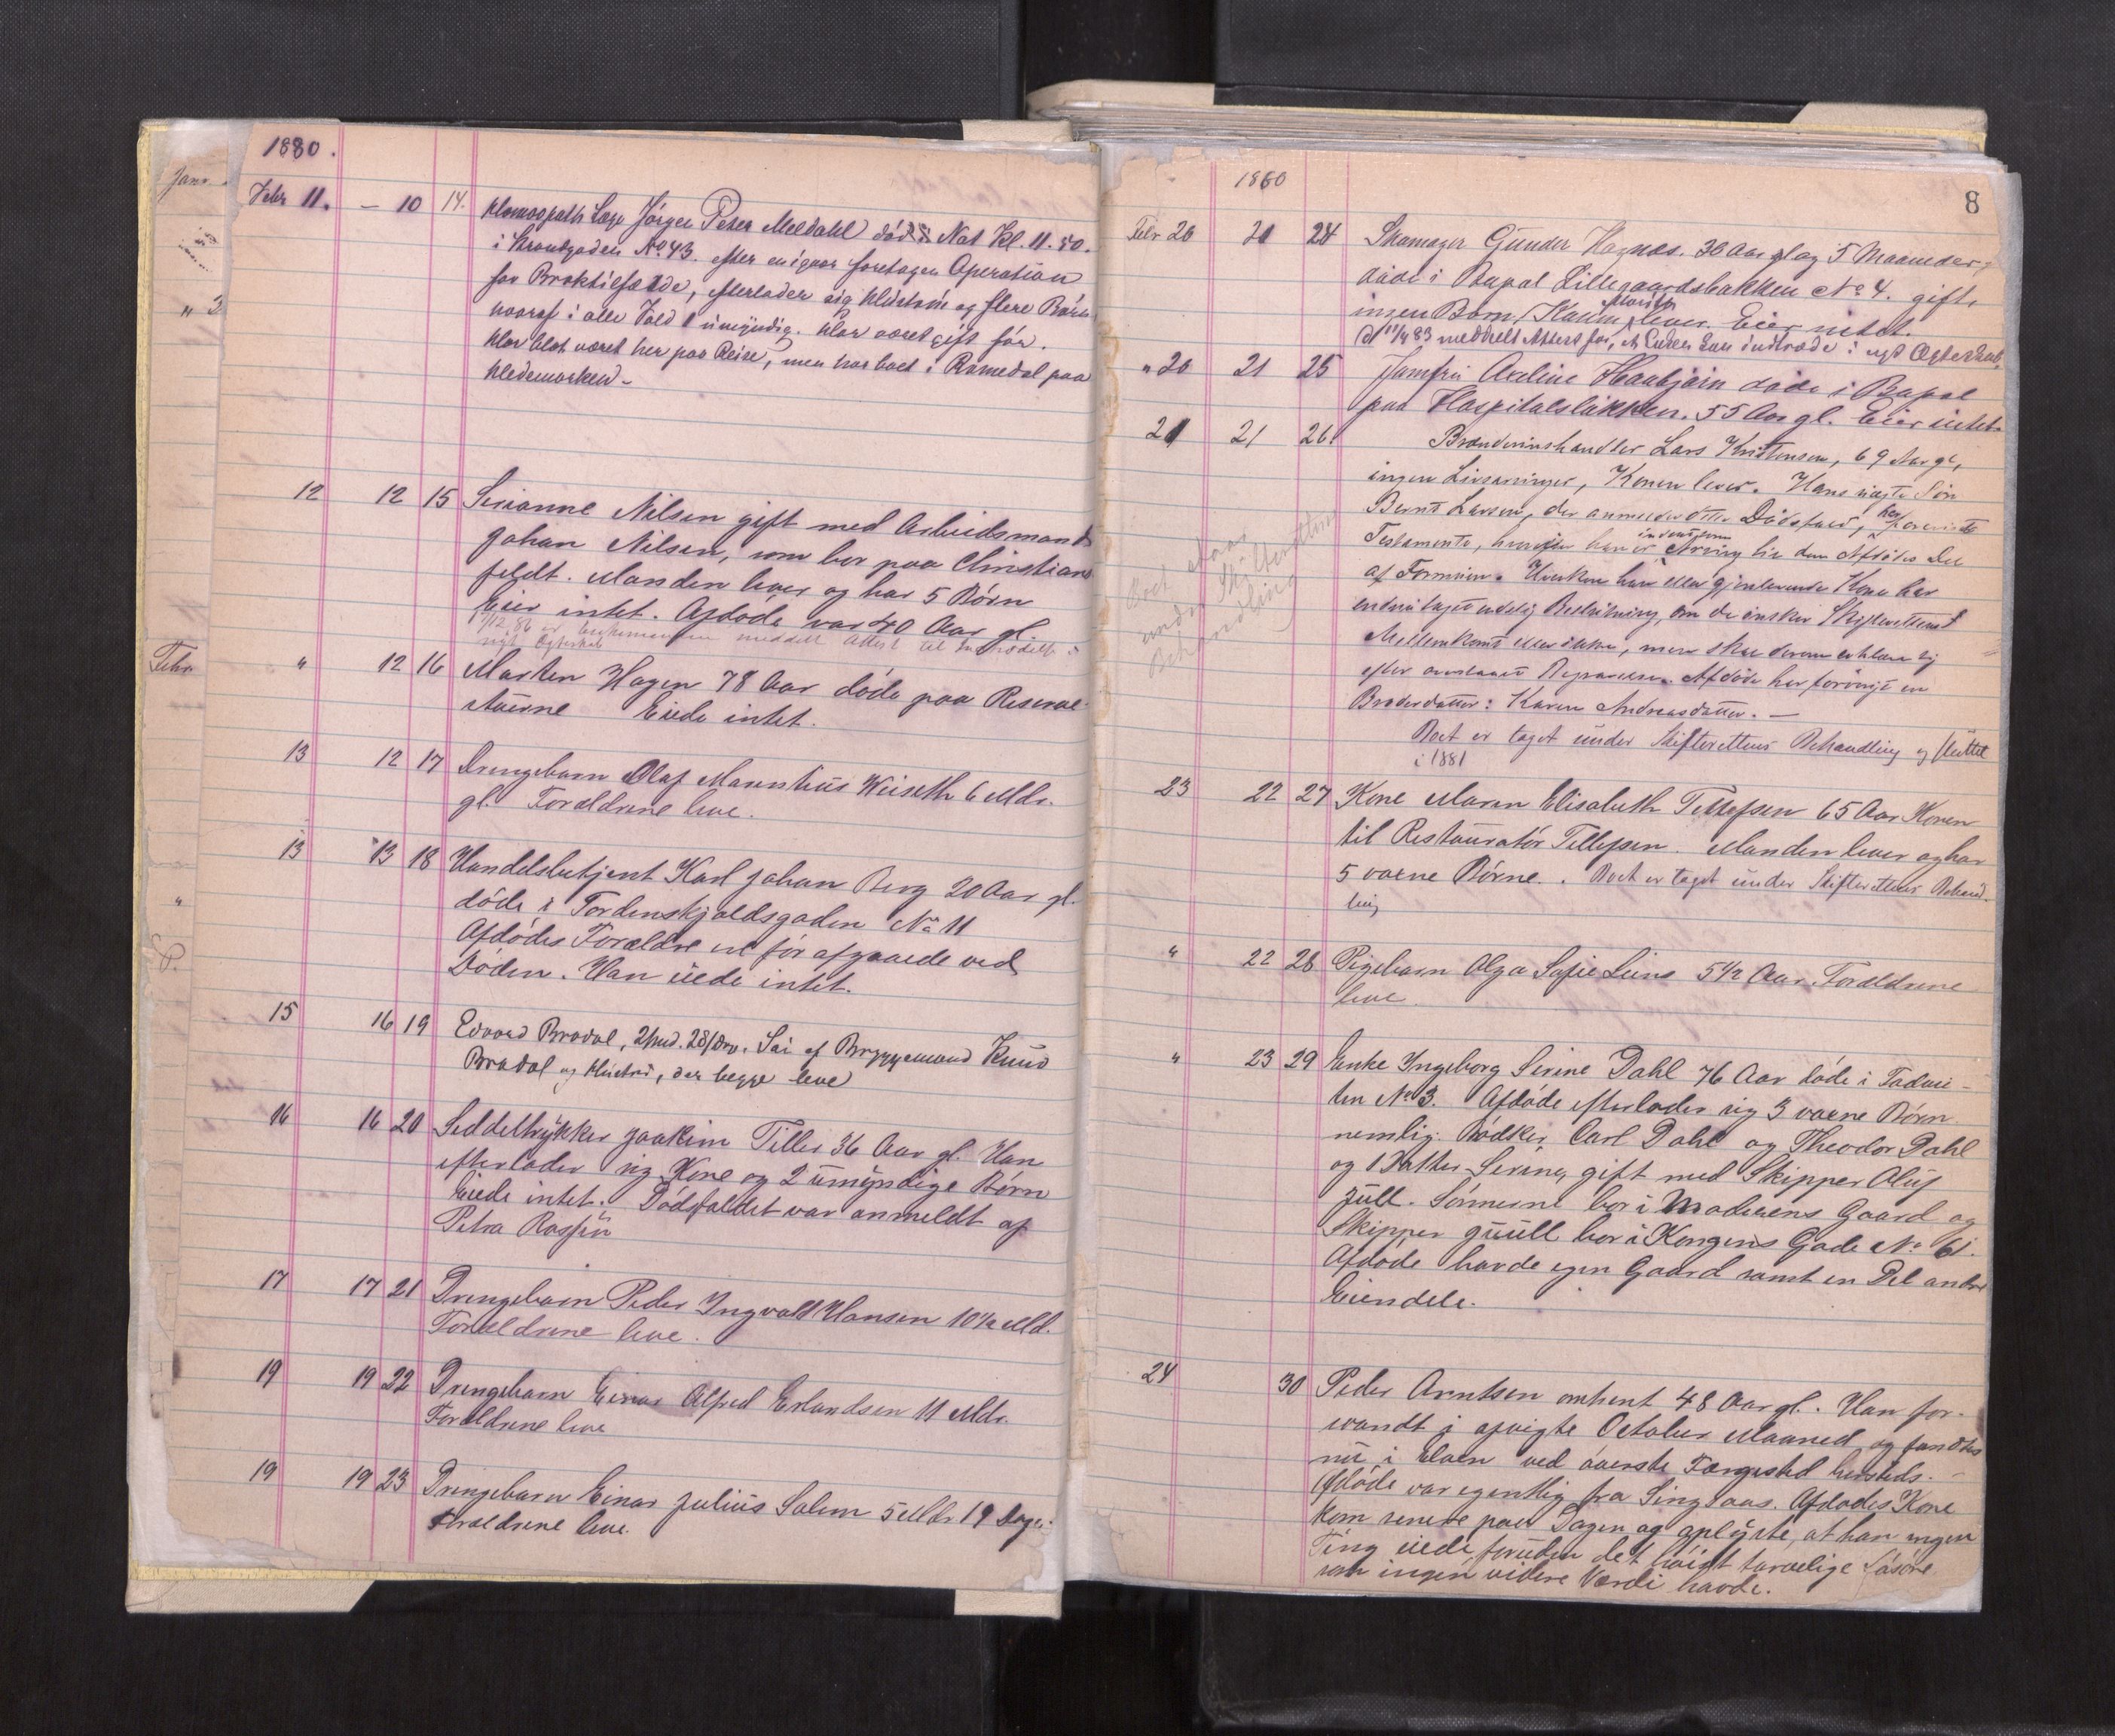 1880.
Febr 11. — 10 14. Homøopath Læge Jørgen Peter Meldahl død i Nat Kl. 11.50.
i Strandgaden No 43. efter en igaar foretagen Operation
for Broktilfælde, efterlader sig Hustru og flere Børn
hvoraf i alle Fald 1 umyndig. Har været gift før.
Har blot været her paa Reise, men har boet i Romedal paa
Hedemarken.
12 12 15 Serianne Nilsen gift med Arbeidsmand
Johan Nilsen, som bor paa Christians
feldt. Manden lever og har 5 Børn
Eier intet. Afdøde var 40 Aar gl.
12.86 er Enkemanden meddelt Attest til Indtrædelse i
nyt Egteskab
" 12 16 Marten Hagen 78 Aar døde paa Reserve
stuerne Eiede intet.
13 12 17 Drengebarn Olaf Mauritius Weiseth 6 Mdr.
gl. Forældrene leve.
13 13 18 Handelsbetjent Karl Johan Berg 20 Aar gl.
døde i Tordenskjoldsgaden No 11
Afdødes Forældre ere før afgaaede ved
Døden. Han eiede intet.
15 16 19 Edvard Bradal, 2 Md. 28 D. Søn af Bryggemand Knud
Bradal og Hustru, der begge leve
16 16 20 Seddeltrykker Joakim Tiller 36 Aar gl. Han
efterlader sig Kone og 2 umyndige Børn
Eiede intet. Dødsfaldet var anmeldt af
Petra
17 17 21 Drengebarn Peder Ingvald Hansen 10½ Md.
Forældrene leve.
19 19 22 Drengebarn Einar Alfred Erlandsen 11 Mdr.
Forældrene leve
19 19 23 Drengebarn Einar Julius Salem 5 Mdr. 19 Dage.
Forældrene leve.
Janr
" 3
Febr
"
8
1880
Febr 20 21 24 Skomager Gunder Hagnæs. 30 Aar og 5 Maaneder,
døde i Bagal Lillegaardsbakken No 4. gift,
ingen Børn, Konen lever. Eier intet.
11/4 83 meddelt Attest for, at Enken kan indtræde i nyt Ægteskab
" 20 21 25 Jomfru Axeline Haubjørn døde i Bagal
paa Hospitalsløkken. 55 Aar gl. Eier intet.
21 21 26. Brændevinshandler Lars Kristensen, 69 Aar gl,
ingen Livsarvinger, Konen lever. Hans uægte Søn
Bernt Larsen, der anmelder dette Dødsfald, har foreviist
Testamente, hvorefter han er indsat som Arving til den Afdødes Del
af Formuen. Hverken han eller gjenlevende Kone har
endnu taget endelig Beslutning, om de ønsker Skifterettens
Mellemkomst eller ikke, men skal derom erklære sig
efter Afdøde har forøvrigt en
Broderdatter: Karen Andreasdatter. —
Boet er taget under Skifterettens Behandling og sluttet
i 1881
Boet staar
under Skifterettens
Behandling
23 22 27 Kone Maren Elisabeth Tellefsen 65 Aar Konen
til Restauratør Tellefsen. Manden lever og har
5 voxne Børn. Boet er taget under Skifterettens Behand-
ling
" 22 28 Pigebarn Olga Sofie Leins 5½ Aar. Forældrene
leve.
" 23 29 Enke Ingeborg Serine Dahl 76 Aar døde i
ten No 3. Afdøde efterlader sig 3 voxne Børn.
nemlig: Bødker Carl Dahl og Theodor Dahl
og 1 Datter Serine, gift med Skipper Oluf
Jull. Sønnerne bor i Moderens Gaard og
Skipper Juull bor i Kongens Gade No 61.
Afdøde havde egen Gaard samt en Del andre
Eiendele.
24 30 Peder Arntsen omtrent 48 Aar gl. Han for-
svandt i afvigte October Maaned og fandtes
nu i Elven ved øverste Færgested hersteds.
Afdøde var egentlig fra Singsaas. Afdødes Kone
kom senere paa Dagen og oplyste, at han ingen
Ting eiede foruden det høist tarvelige Løsøre
som ingen videre Værdi havde.